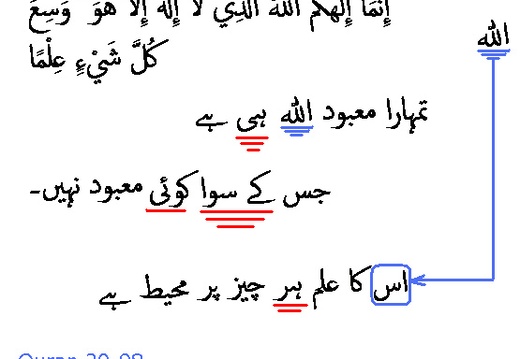 إِنَّمَا إِلَٰهُكُمُ اللَّهُ الَّذِي لَا إِلَٰهَ إِلَّا هُوَ وَسِعَ
الله
كُلَّ شَيْءٍ عِلْمًا
تمہارا معبود اللہ ہی ہے
جس کے سوا کوئی معبود نہیں۔
اس کا علم ہر چیز پر محیط ہے
Quran 20-98